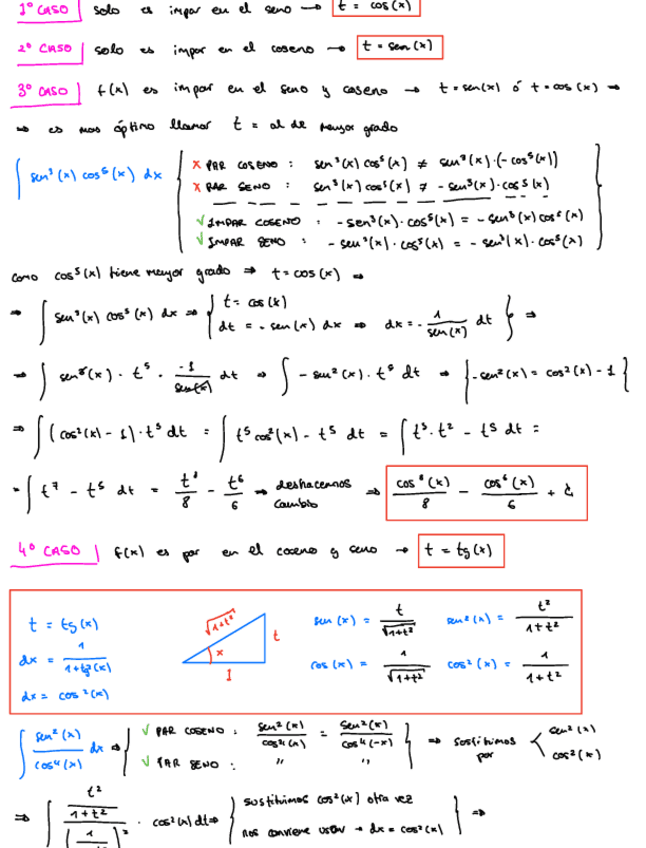 1º CASO solo es impar en el seno → t = cos(x)
2º CASO solo es impar en el coseno → t = sen(x)
3º CASO f(x) es impar en el seno y coseno → t = sen(x) ó t = cos(x) ⇒
⇒ es mas óptimo llamar t = al de mayor grado
∫ sen³(x) cos⁵(x) dx
x PAR COSENO : sen³(x) cos⁵(x) ≠ sen³(x)·(-cos⁵(x))
x PAR SENO : sen³(x) cos⁵(x) ≠ -sen³(x)·cos⁵(x)
√ IMPAR COSENO : -sen³(x)·cos⁵(x) = -sen³(x) cos⁵(x)
√ IMPAR SENO : -sen³(x)·cos⁵(x) = -sen³(x)·cos⁵(x)
como cos⁵(x) tiene mayor grado ⇒ t = cos(x) ⇒
⇒ ∫ sen³(x) cos⁵(x) dx ⇒ { t = cos(x)
dt = -sen(x) dx ⇒ dx = -1/sen(x) dt } ⇒
⇒ ∫ sen³(x) · t⁵ · -1/sen(x) dt ⇒ ∫ -sen²(x) · t⁵ dt ⇒ { -sen²(x) = cos²(x) - 1 }
⇒ ∫ (cos²(x) - 1) · t⁵ dt = ∫ t⁵ cos²(x) - t⁵ dt = ∫ t⁵ · t² - t⁵ dt =
= ∫ t⁷ - t⁵ dt = t⁸/8 - t⁶/6 ⇒ deshacemos cambio ⇒ cos⁸(x)/8 - cos⁶(x)/6 + C
4º CASO f(x) es par en el coseno y seno → t = tg(x)
t = tg(x)
dx = 1/1+tg(x)
dx = cos²(x)
√1+t² t x 1
sen(x) = t/√1+t² sen²(x) = t²/1+t²
cos(x) = 1/√1+t² cos²(x) = 1/1+t²
∫ sen²(x)/cos⁴(x) dx ⇒ { √ PAR COSENO : sen²(x)/cos⁴(x) = sen²(x)/cos⁴(-x)
√ PAR SENO : " " } ⇒ sostituimos por < sen²(x)
cos²(x)
⇒ ∫ t²/1+t² / (1/ )² · cos²(x) dt ⇒ { sustituimos cos²(x) otra vez
nos conviene usar → dx = cos²(x) } ⇒